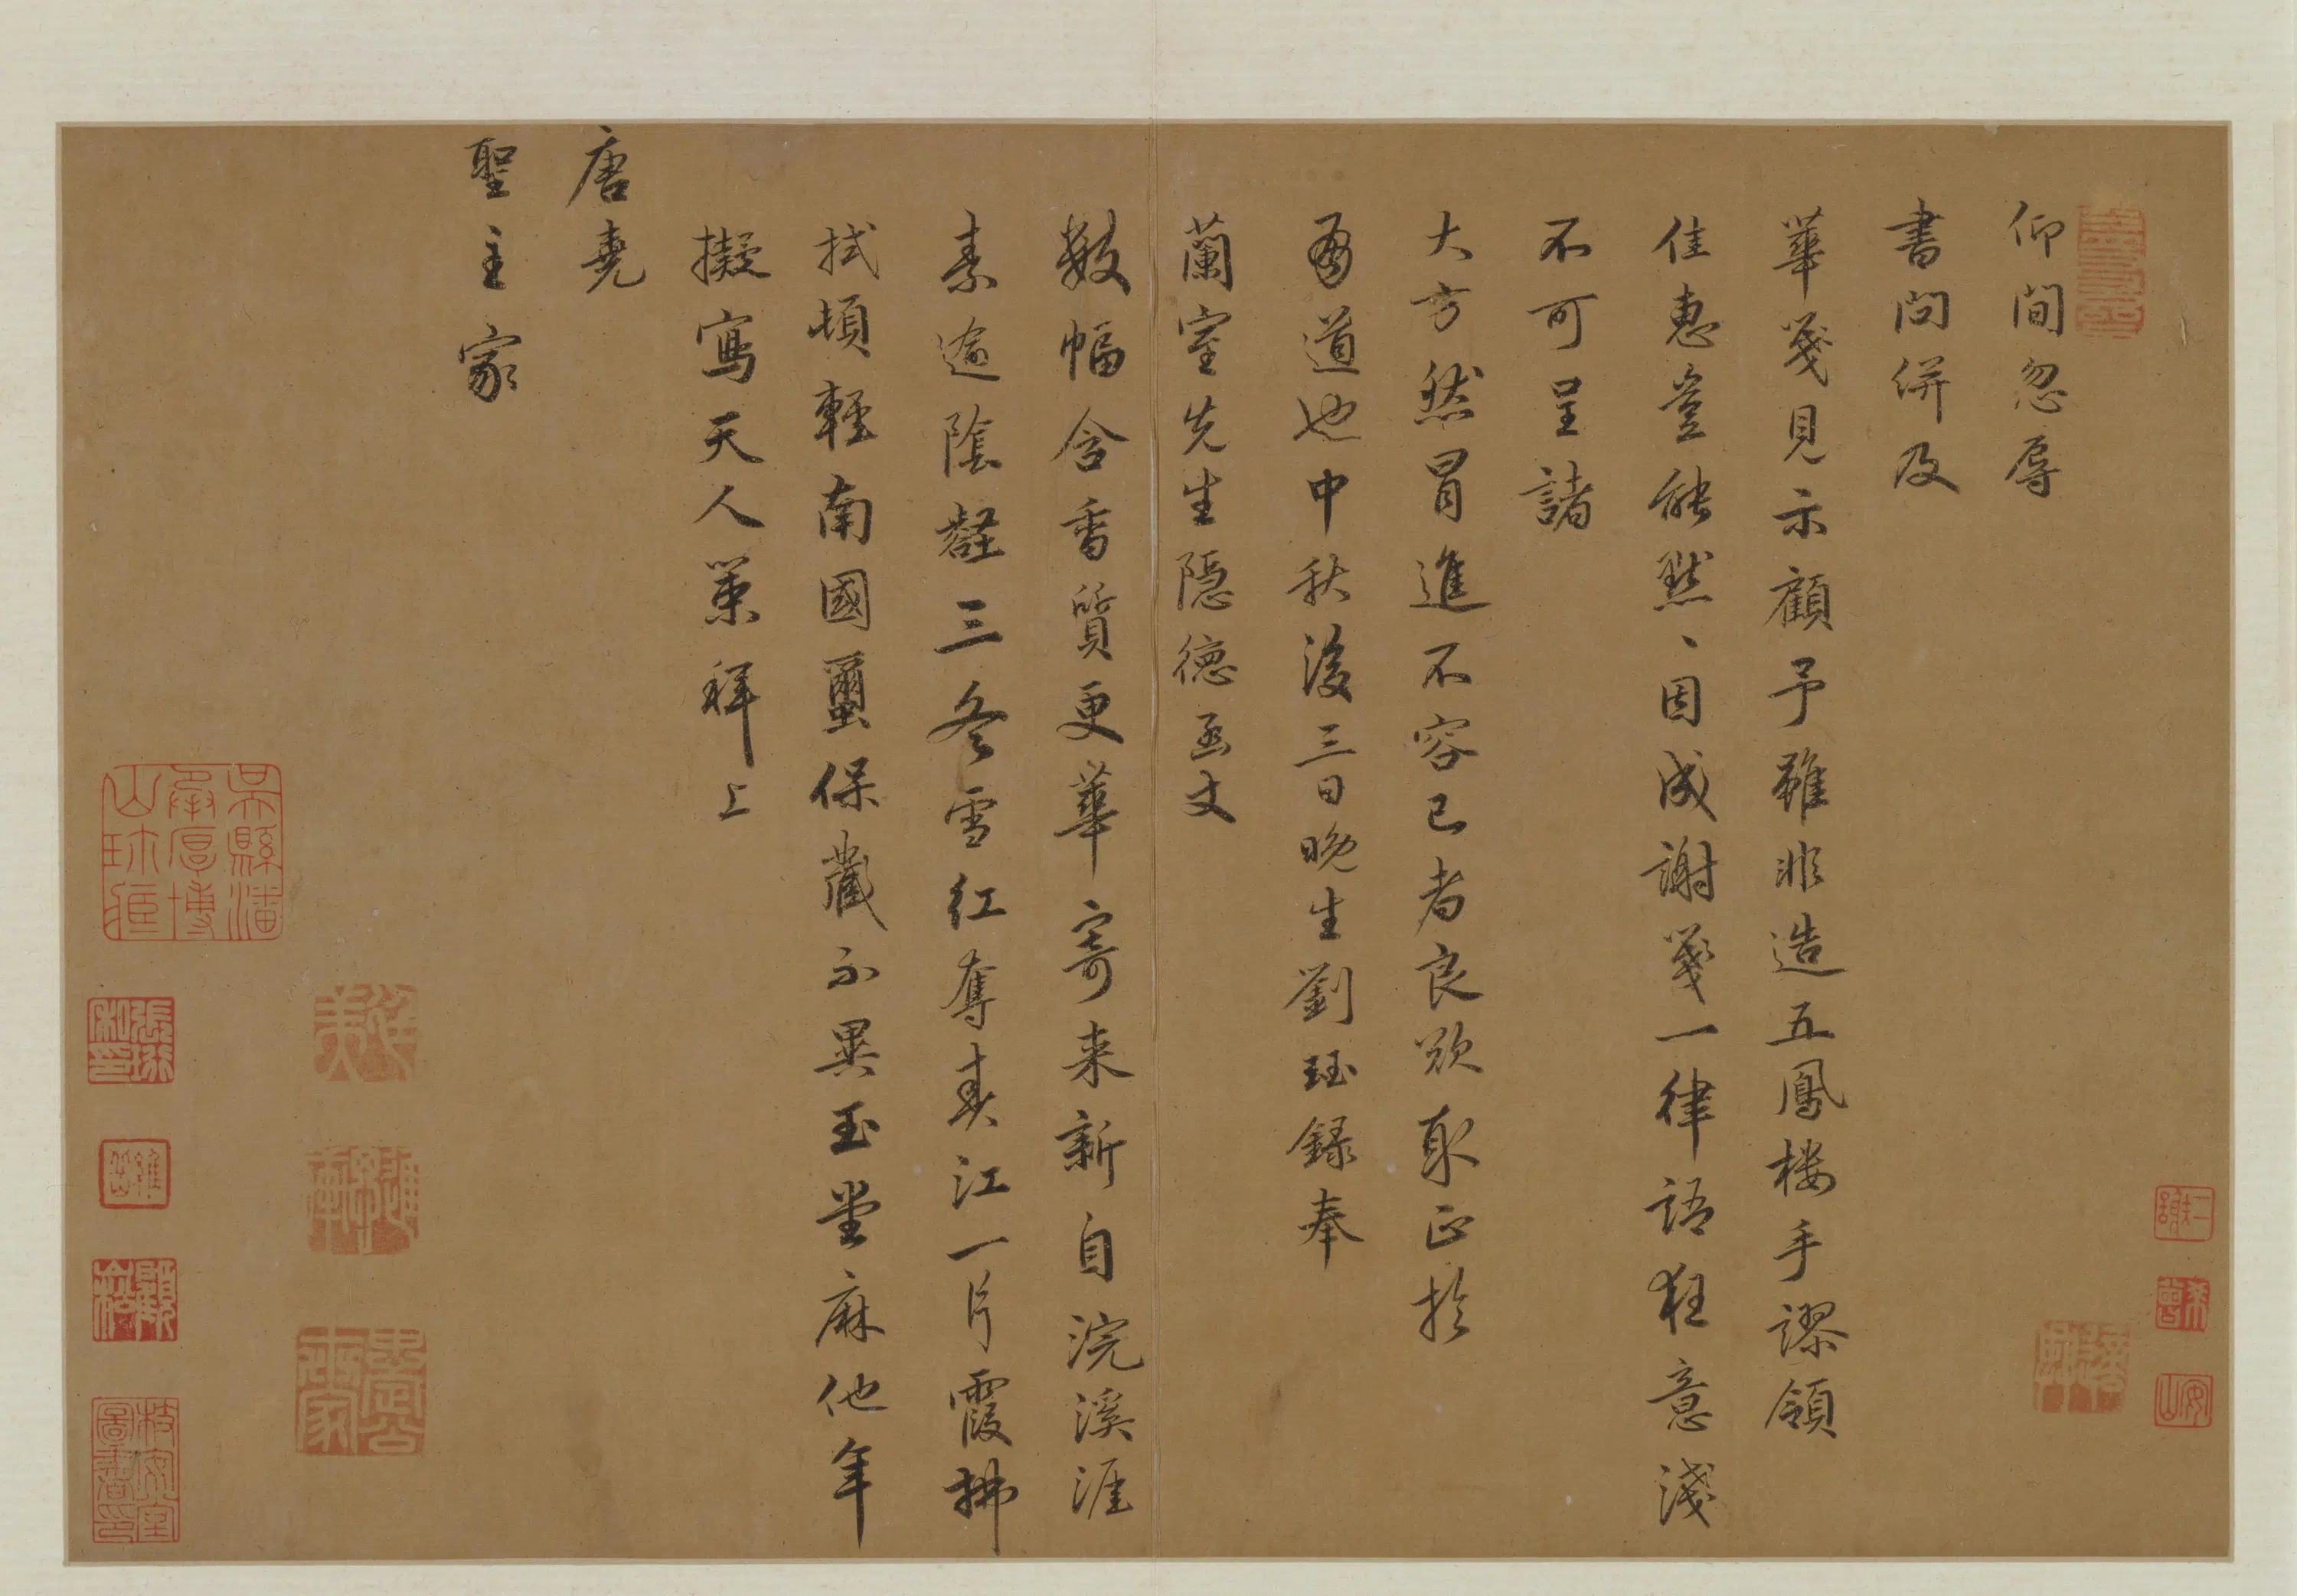 仰間忽辱
書問併及
華箋見示顧予雖非造五鳳樓手謬領
佳惠豈能默、因成謝箋一律語狂意淺
不可呈諸
大方然冒進不容已者良欲取正於
有道也中秋後三日晚生劉珏録奉
蘭室先生隱德函丈
數幅含香質更華寄来新自浣溪涯
素逾陰壑三冬雪紅奪春江一片霞拂
拭頓輕南國璽保藏不異玉堂麻他年
擬寫天人策拜上
唐堯
聖主家
吳縣潘承厚博山珍賞